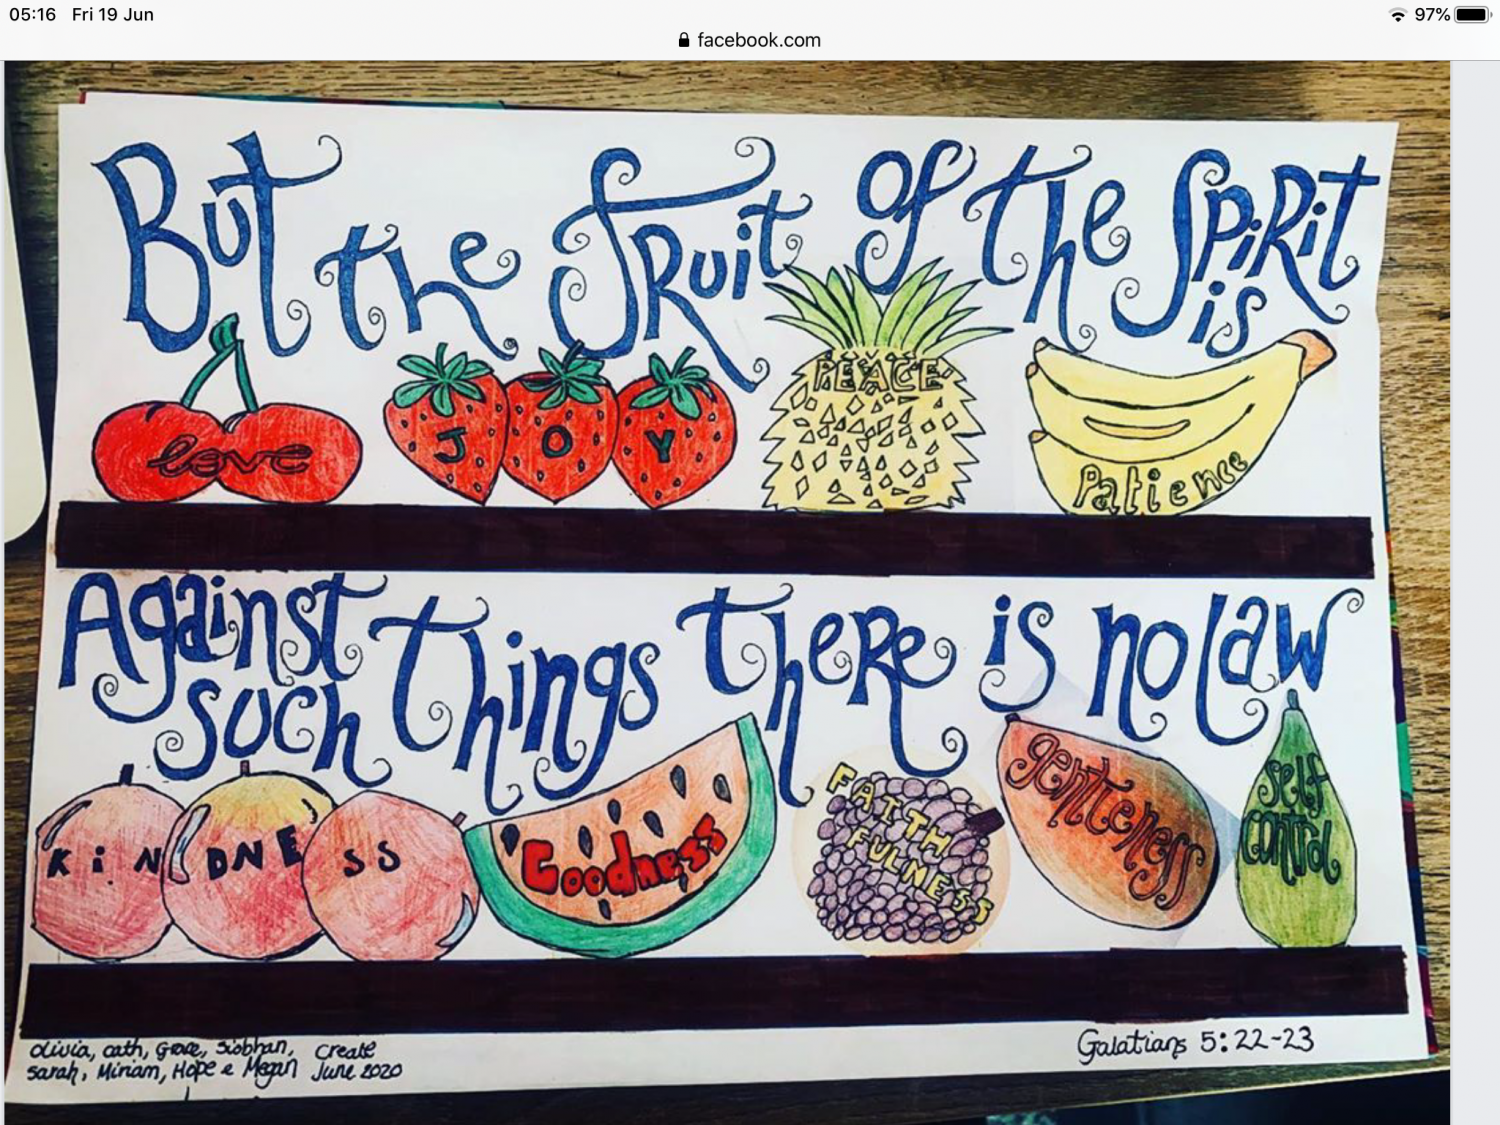 05:16 Fri 19 Jun
97%
facebook.com
But the fRuit of the SpiRit
is
love
JOY
PEACE
Patience
Against
such things theRe is no law
KiNDNESS
Goodness
FAITH
FULNESS
gentleness
self
control
olivia, cath, Grace, Siobhan,
sarah, Miriam, Hope & Megan
Create
June 2020
Galatians 5:22-23